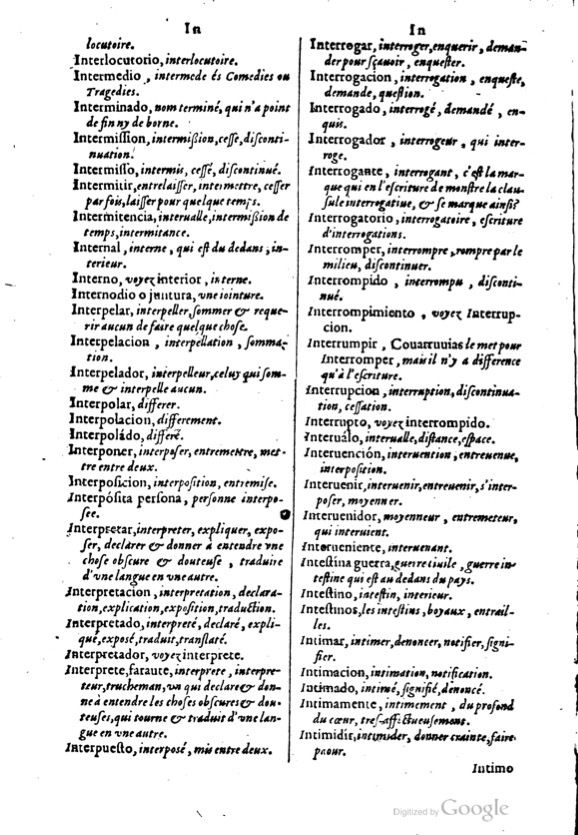 In
locutoire.
Interlocutorio, interlocutoire.
Intermedio, intermede és Comedies ou
Tragedies.
Interminado, nom terminé, qui n'a point
de fin ny de borne.
Intermission, intermißion, cesse, disconti-
nuation.
Intermisso, intermis, cessé, discontinué.
Intermitir, entrelaisser, intermettre, cesser
par fois, laisser pour quelque temps.
Intermitencia, interualle, intermißion de
temps, intermitance.
Internal, interne, qui est du dedans, in-
terieur.
Interno, voyez interior, interne.
Internodio o juntura, vne iointure.
Interpelar, interpeller, sommer & reque-
rir aucun de faire quelque chose.
Interpelacion, interpellation, somma-
tion.
Interpelador, interpelleur, celuy qui som-
me & interpelle aucun.
Interpolar, differer.
Interpolacion, differement.
Interpoládo, differé.
Interponer, interposer, entremettre, met-
tre entre deux.
Interposicion, interposition, entremise.
Interpósita persona, personne interpo-
see.
Interpretar, interpreter, expliquer, expo-
ser, declarer & donner à entendre vne
chose obscure & douteuse, traduire
d'vne langue en vne autre.
Interpretacion, interpretation, declara-
tion, explication, exposition, traduction.
Interpretado, interpreté, declaré, expli-
qué, exposé, traduit, translaté.
Interpretador, voyez interprete.
Interprete, faraute, interprete, interpre-
teur, trucheman, vn qui declare & don-
ne à entendre les choses obscures & dou-
teuses, qui tourne & traduit d'vne lan-
gue en vne autre.
Interpuesto, interposé, mis entre deux.
In
Interrogar, interroger, enquerir, deman-
der pour sçauoir, enquester.
Interrogacion, interrogation, enqueste,
demande, question.
Interrogado, interrogé, demandé, en-
quis.
Interrogador, interrogeur, qui inter-
roge.
Interrogante, interrogant, c'est la mar-
que qui en l'escriture demonstre la clau-
sule interrogatiue, & se marque ainsi?
Interrogatorio, interrogatoire, escriture
d'interrogations.
Interromper, interrompre, rompre par le
milieu, discontinuer.
Interrompido, interrompu, disconti-
nué.
Interrompimiento, voyez Interrup-
cion.
Interrumpir, Couarruuias le met pour
Interromper, mais il n'y a difference
qu'à l'escriture.
Interrupcion, interruption, discontinua-
tion, cessation.
Interrupto, voyez interrompido.
Interuálo, interualle, distance, espace.
Interuención, interuention, entreuenue,
interposition.
Interuenir, interuenir, entreuenir, s'inter-
poser, moyenner.
Interuenidor, moyenneur, entremeteur,
qui interuient.
Interueniente, interuenant.
Intestina guerra, guerre ciuile, guerre in-
testine qui est au dedans du pays.
Intestino, intestin, interieur.
Intestinos, les intestins, boyaux, entrail-
les.
Intimar, intimer, denoncer, notifier, signi-
fier.
Intimacion, intimation, notification.
Intimado, intimé, signifié, denoncé.
Intimamente, intimement, du profond
du cœur, tres-affectueusement.
Intimidir, intimider, donner crainte, faire
paour.
Intimo
Digitized by Google